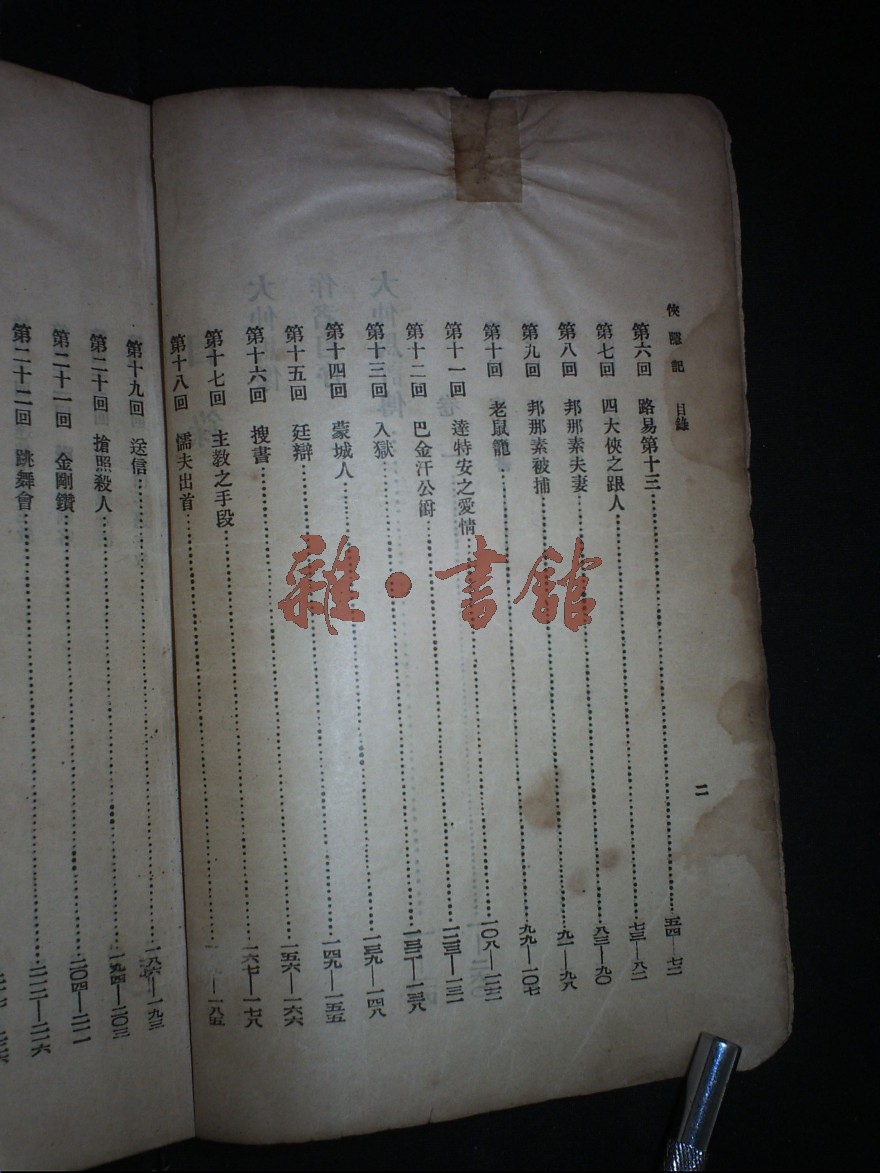 俠隱記 目錄
二
第六回 路易第十三 五四—七二
第七回 四大俠之跟人 七三—八二
第八回 邦那素夫妻 八三—九〇
第九回 邦那素被捕 九一—九八
第十回 老鼠籠 九九—一〇七
第十一回 達特安之愛情 一〇八—一二二
第十二回 巴金汗公爵 一二三—一三一
第十三回 入獄 一三二—一三八
第十四回 蒙城人 一三九—一四八
第十五回 廷辯 一四九—一五五
第十六回 搜書 一五六—一六六
第十七回 主教之手段 一六七—一七八
第十八回 懦夫出首 —一八五
第十九回 送信 一八六—一九三
第二十回 搶照殺人 一九四—二〇三
第二十一回 金剛鑽 二〇四—二一一
第二十二回 跳舞會 二一二—二一六
雜·書館